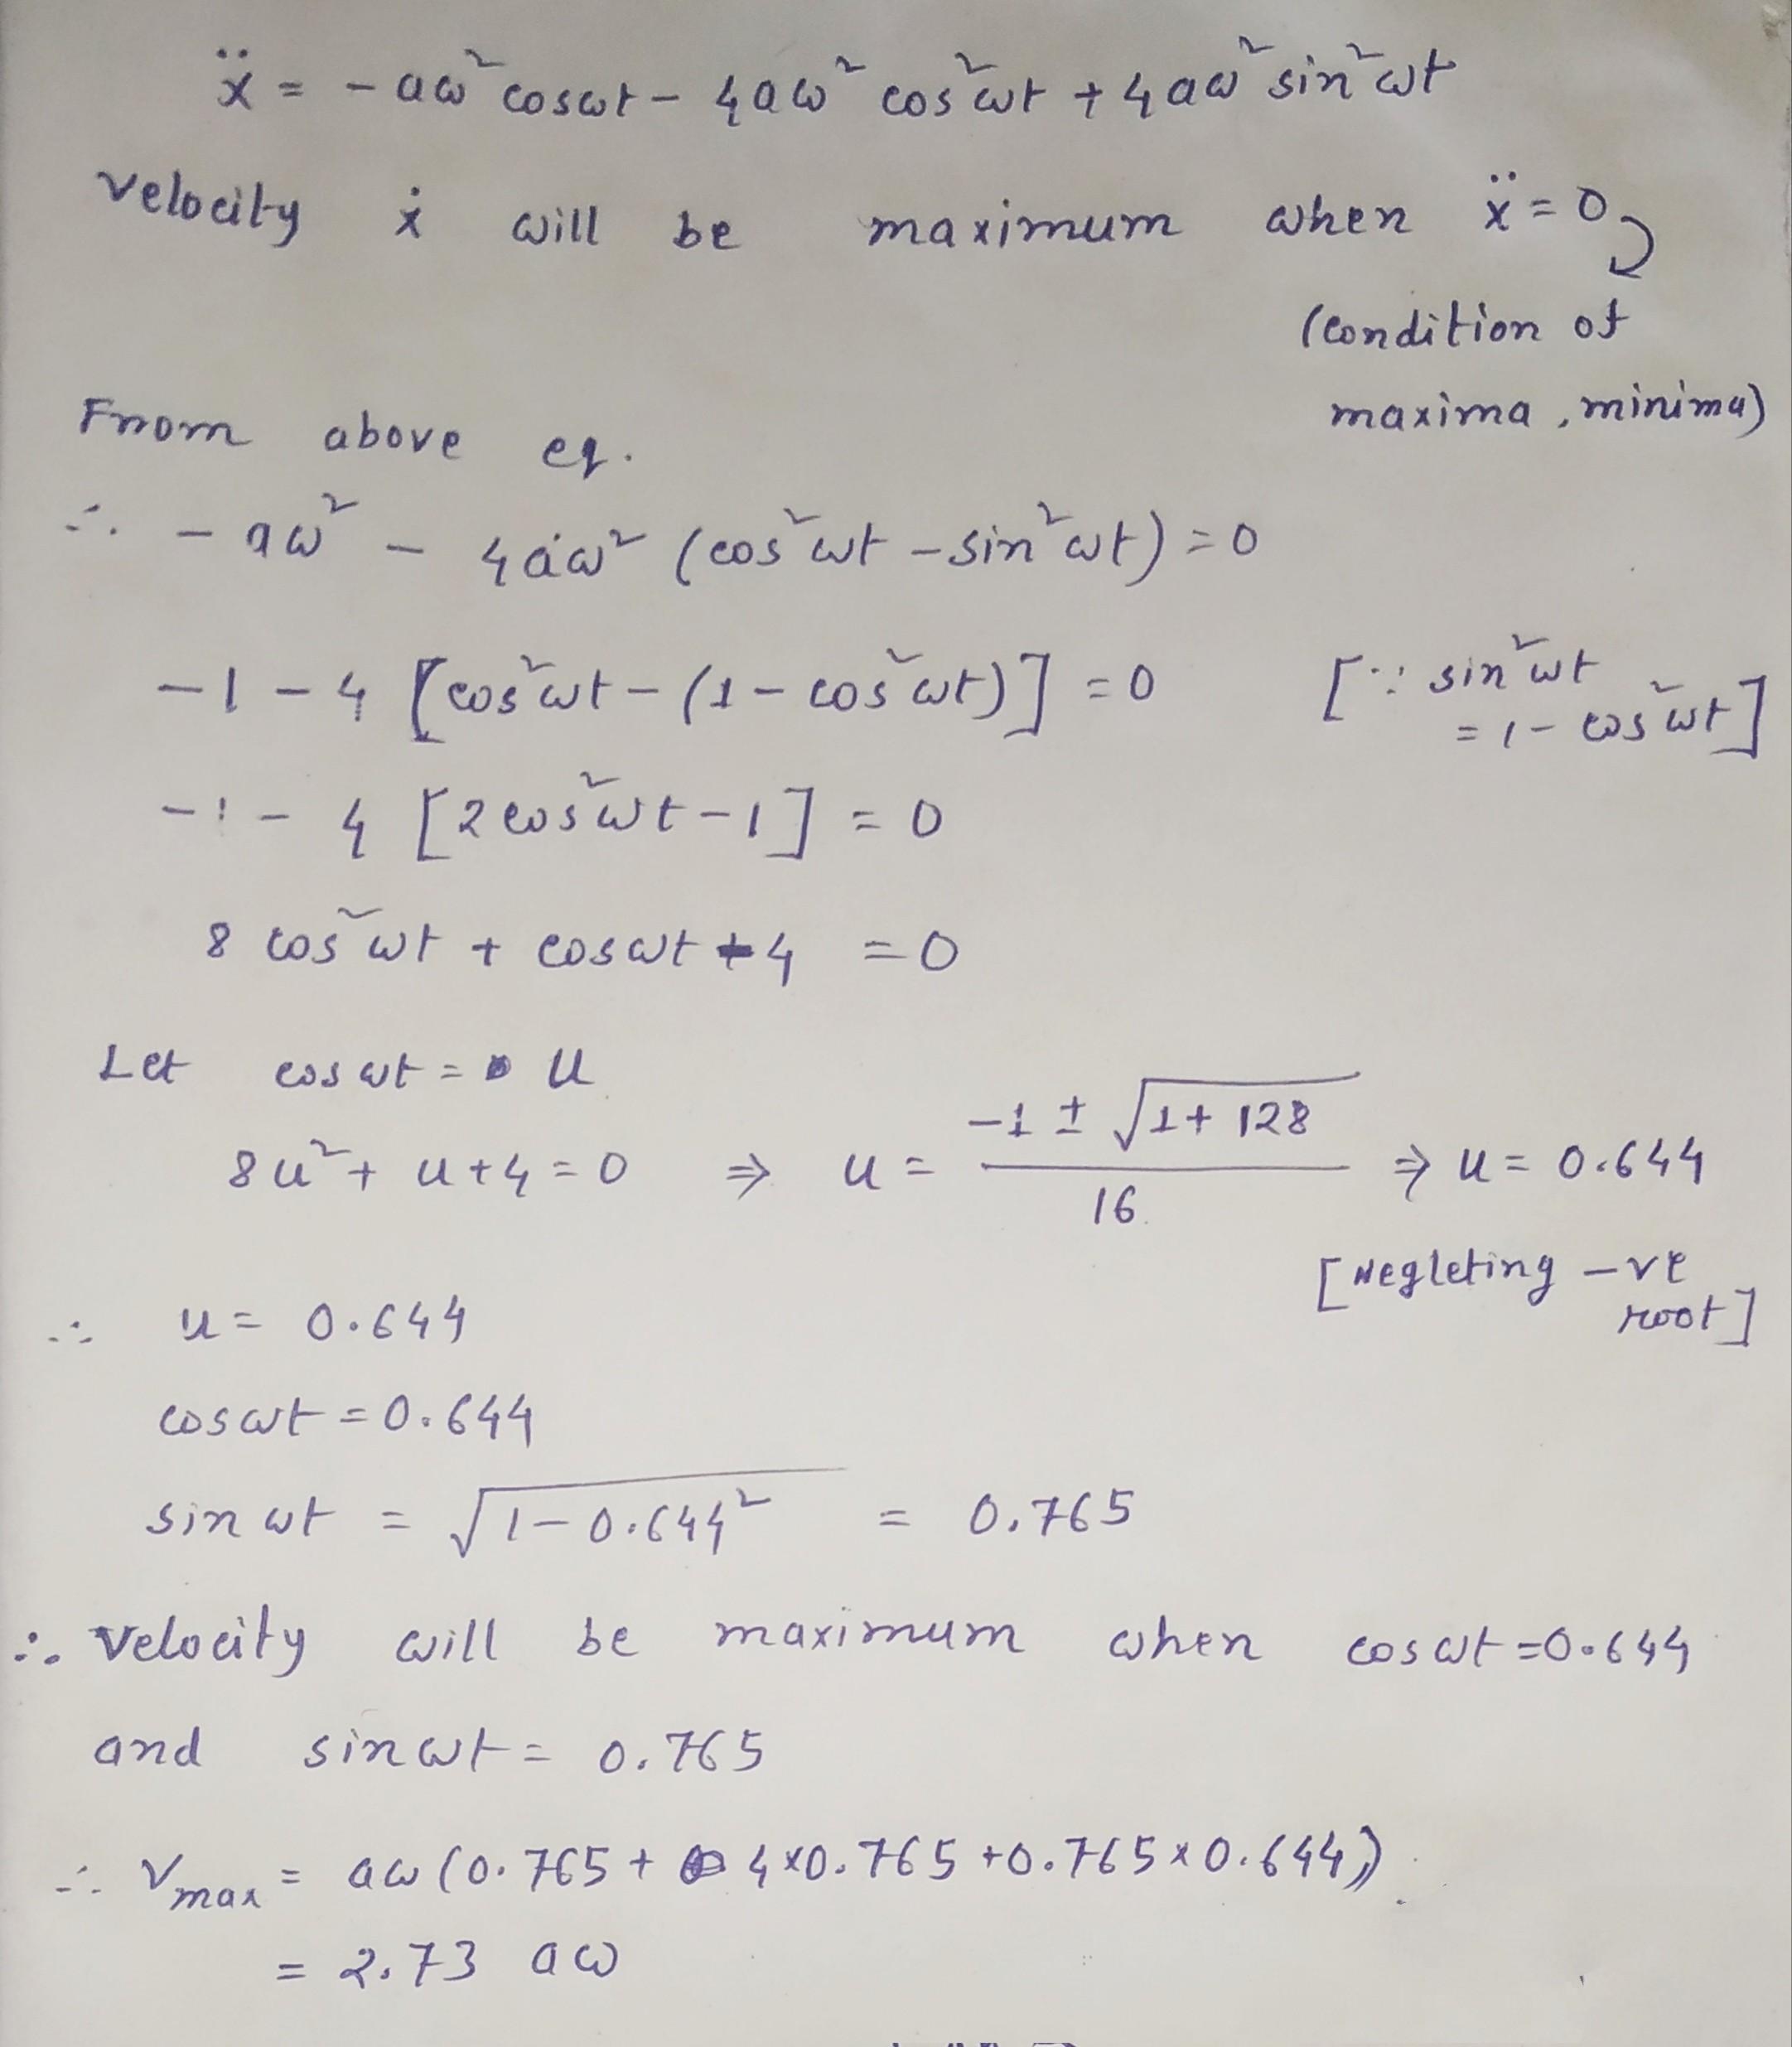 ẍ = - aω² cosωt - 4aω² cos²ωt + 4aω² sin²ωt
velocity ẋ will be maximum when ẍ = 0
(condition of
maxima, minima)
From above eq.
∴ - aω² - 4aω² (cos²ωt - sin²ωt) = 0
-1 - 4 [cos²ωt - (1 - cos²ωt)] = 0 [∵ sin²ωt
= 1 - cos²ωt]
-1 - 4 [2cos²ωt - 1] = 0
8 cos²ωt + cosωt + 4 = 0
Let cosωt = u
8u² + u + 4 = 0 ⇒ u = (-1 ± √(1 + 128))/16 ⇒ u = 0.644
[Negleting -ve
root]
∴ u = 0.644
cosωt = 0.644
sinωt = √(1 - 0.644²) = 0.765
∴ velocity will be maximum when cosωt = 0.644
and sinωt = 0.765
∴ Vmax = aω (0.765 + 4×0.765 + 0.765×0.644)
= 2.73 aω